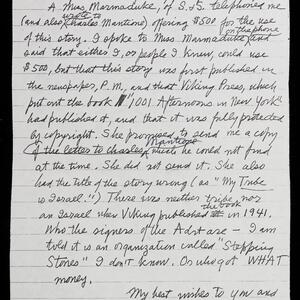 A Miss Marmaduke, of S.&S. telephoned me
wrote to
(and also Charles Mantione) offering $500 for the use
of this story. I spoke to Miss Marmaduke and
on the phone
said that either I, or people I knew, could use
$500, but that this story was first published in
the newspaper, P.M., and that Viking Press, which
put out the book "1001 Afternoons in New York"
had published it, and that it was fully protected
by copyright. She promised to send me a copy
Mantione
of the letter to Charles which he could not find
at the time. She did not send it. She also
had the title of the story wrong (as "My Tribe
is Israel.") There was neither tribe, nor
the book
an Israel when Viking published in 1941.
Who the signers of the Ad are – I am
told it is an organization called "Stepping
Stones" I don't know. Or who got WHAT
money.
My best wishes to you and